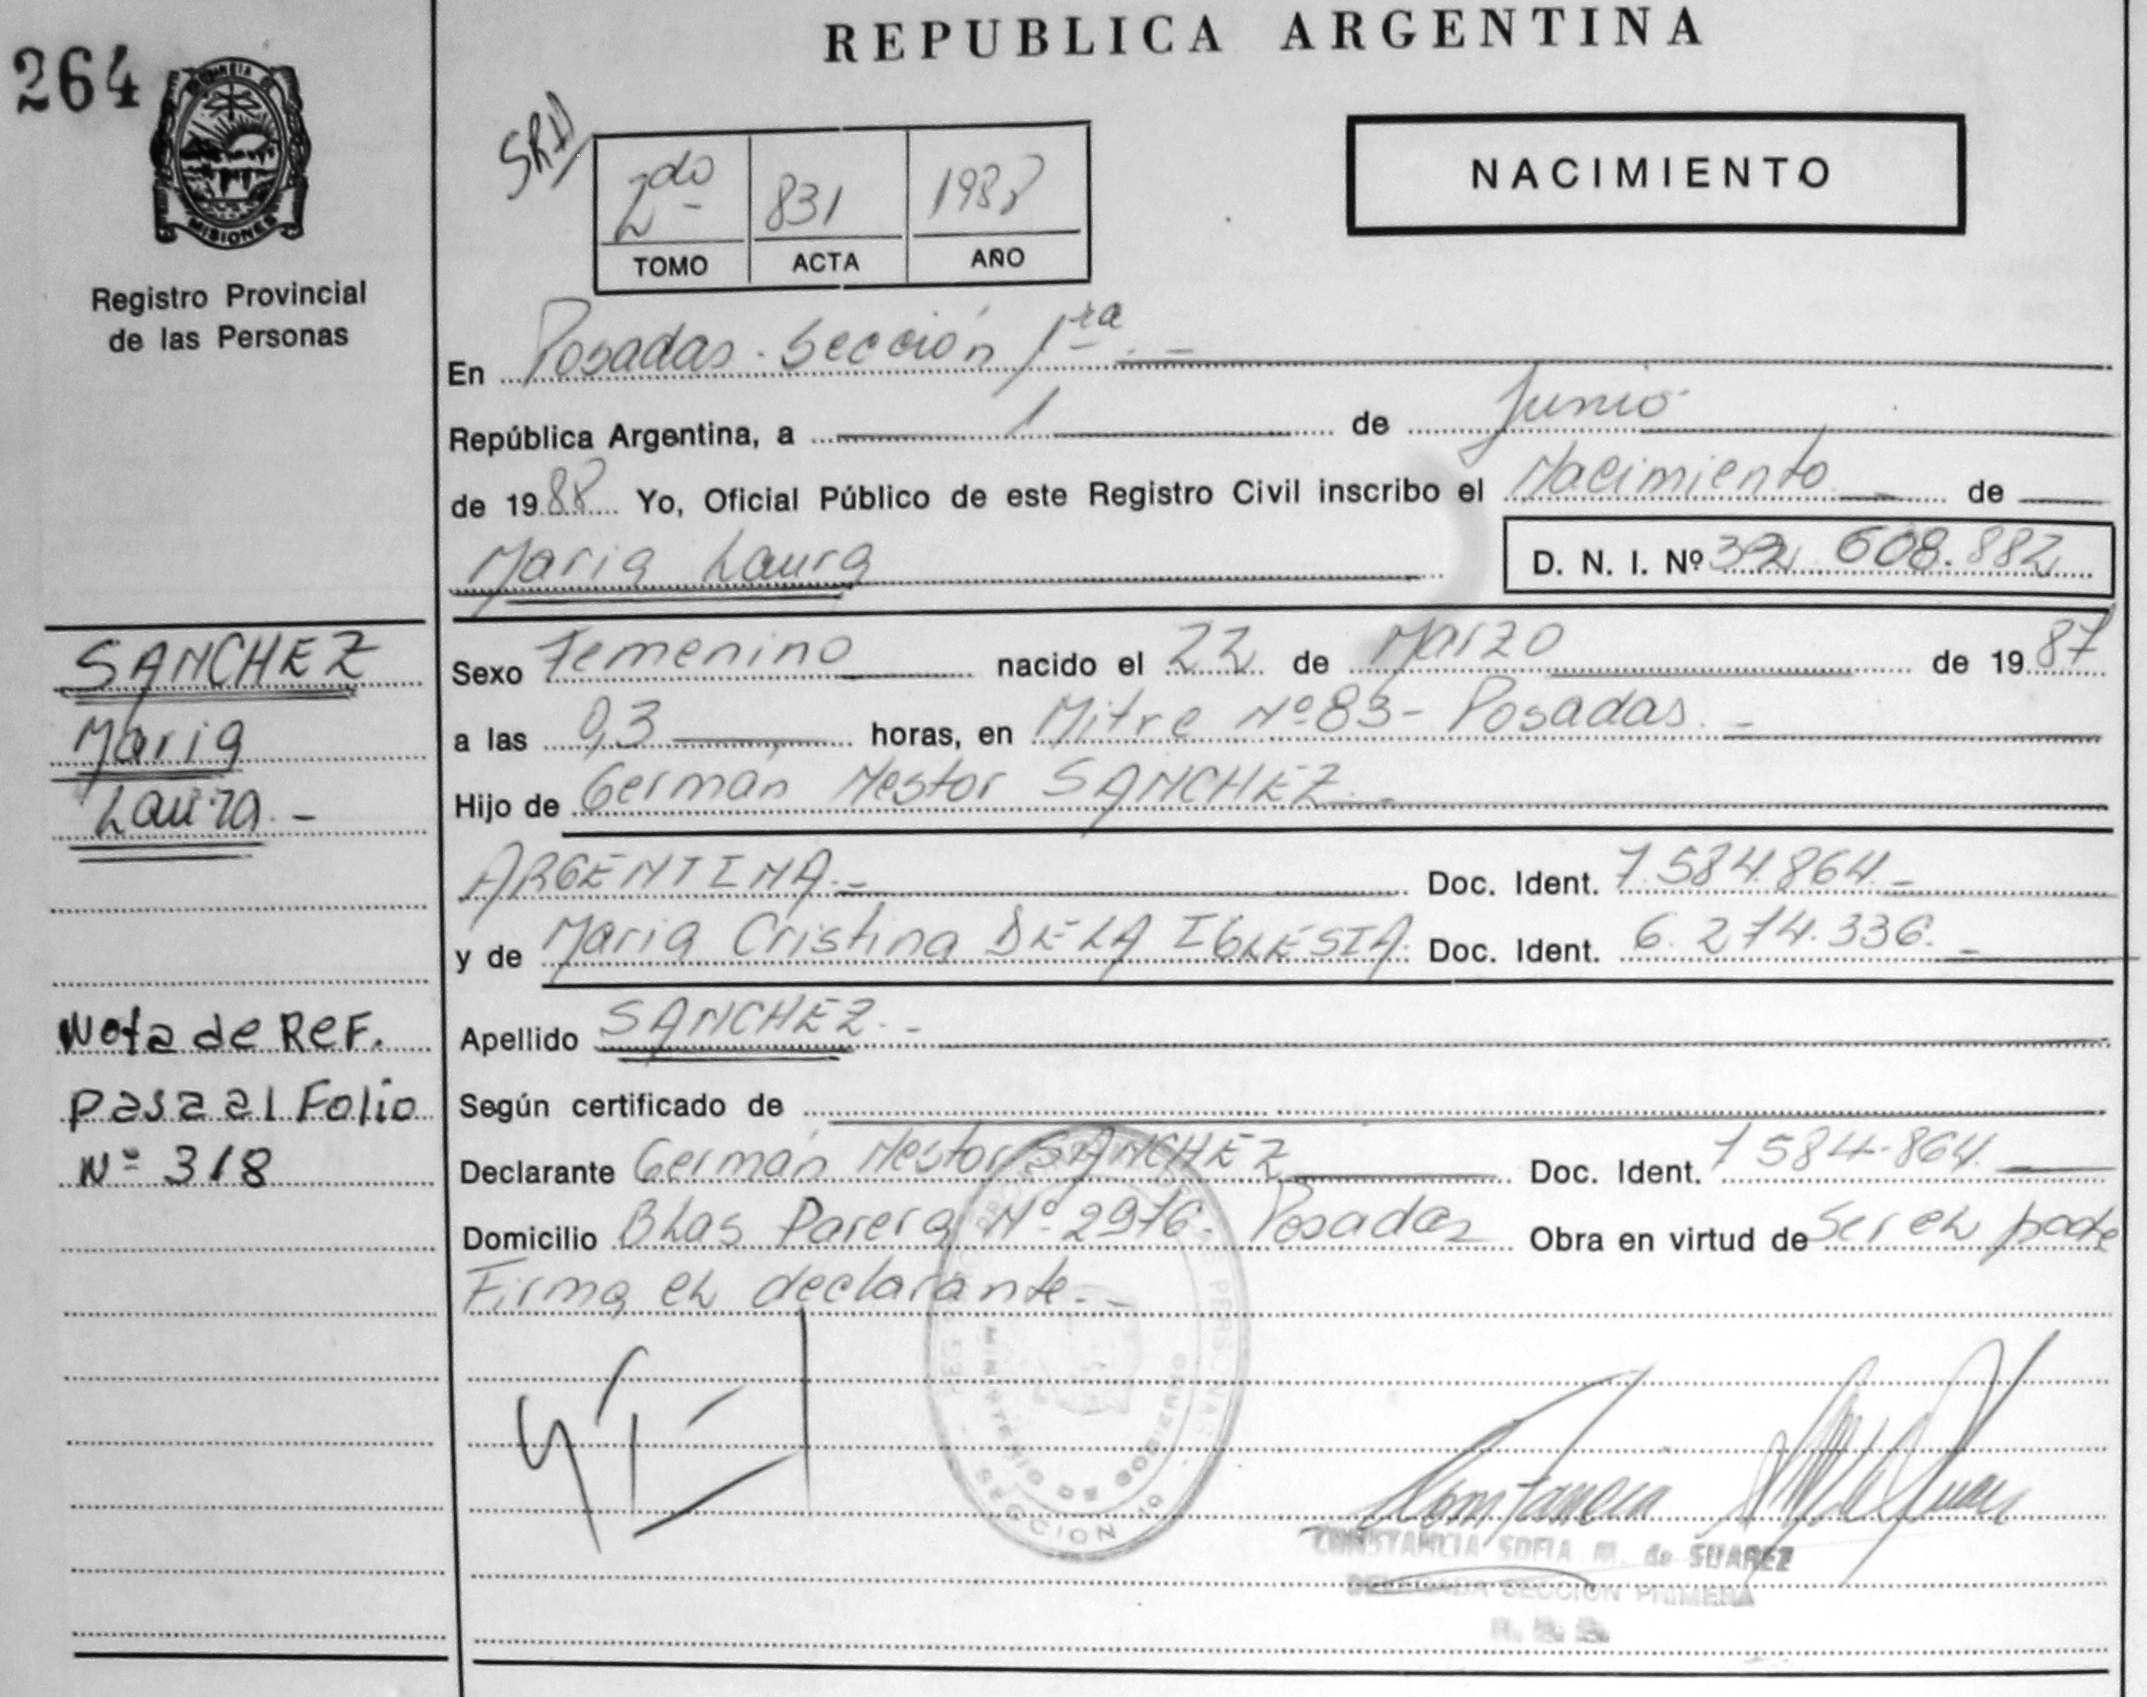 REPUBLICA ARGENTINA
264
PROVINCIA DE
MISIONES
Registro Provincial
de las Personas
2do 831 1988
TOMO ACTA AÑO
NACIMIENTO
En Posadas. Sección 1ra. -
República Argentina, a 1 de Junio
de 1988 Yo, Oficial Público de este Registro Civil inscribo el Nacimiento - de
Maria Laura D. N. I. Nº 32 608.882
SANCHEZ
Maria
Laura. -
Sexo Femenino nacido el 22 de Marzo de 1987
a las 0,3 horas, en Mitre Nº 83 - Posadas. -
Hijo de Germán Nestor SANCHEZ. -
ARGENTINA. - Doc. Ident. 7.584.864. -
y de Maria Cristina DE LA IGLESIA. Doc. Ident. 6.274.336. -
Apellido SANCHEZ. -
Según certificado de
Declarante Germán Nestor SANCHEZ Doc. Ident. 7 584.864.
Domicilio Blas Parera Nº 2976. Posadas Obra en virtud de ser el padre
Firma el declarante. -
Nota de Ref.
pasa al Folio
Nº 318
MINISTERIO DE GOBIERNO
SECCION
CONSTANCIA SOFIA M. de SUAREZ
DELEGADA SECCION PRIMERA